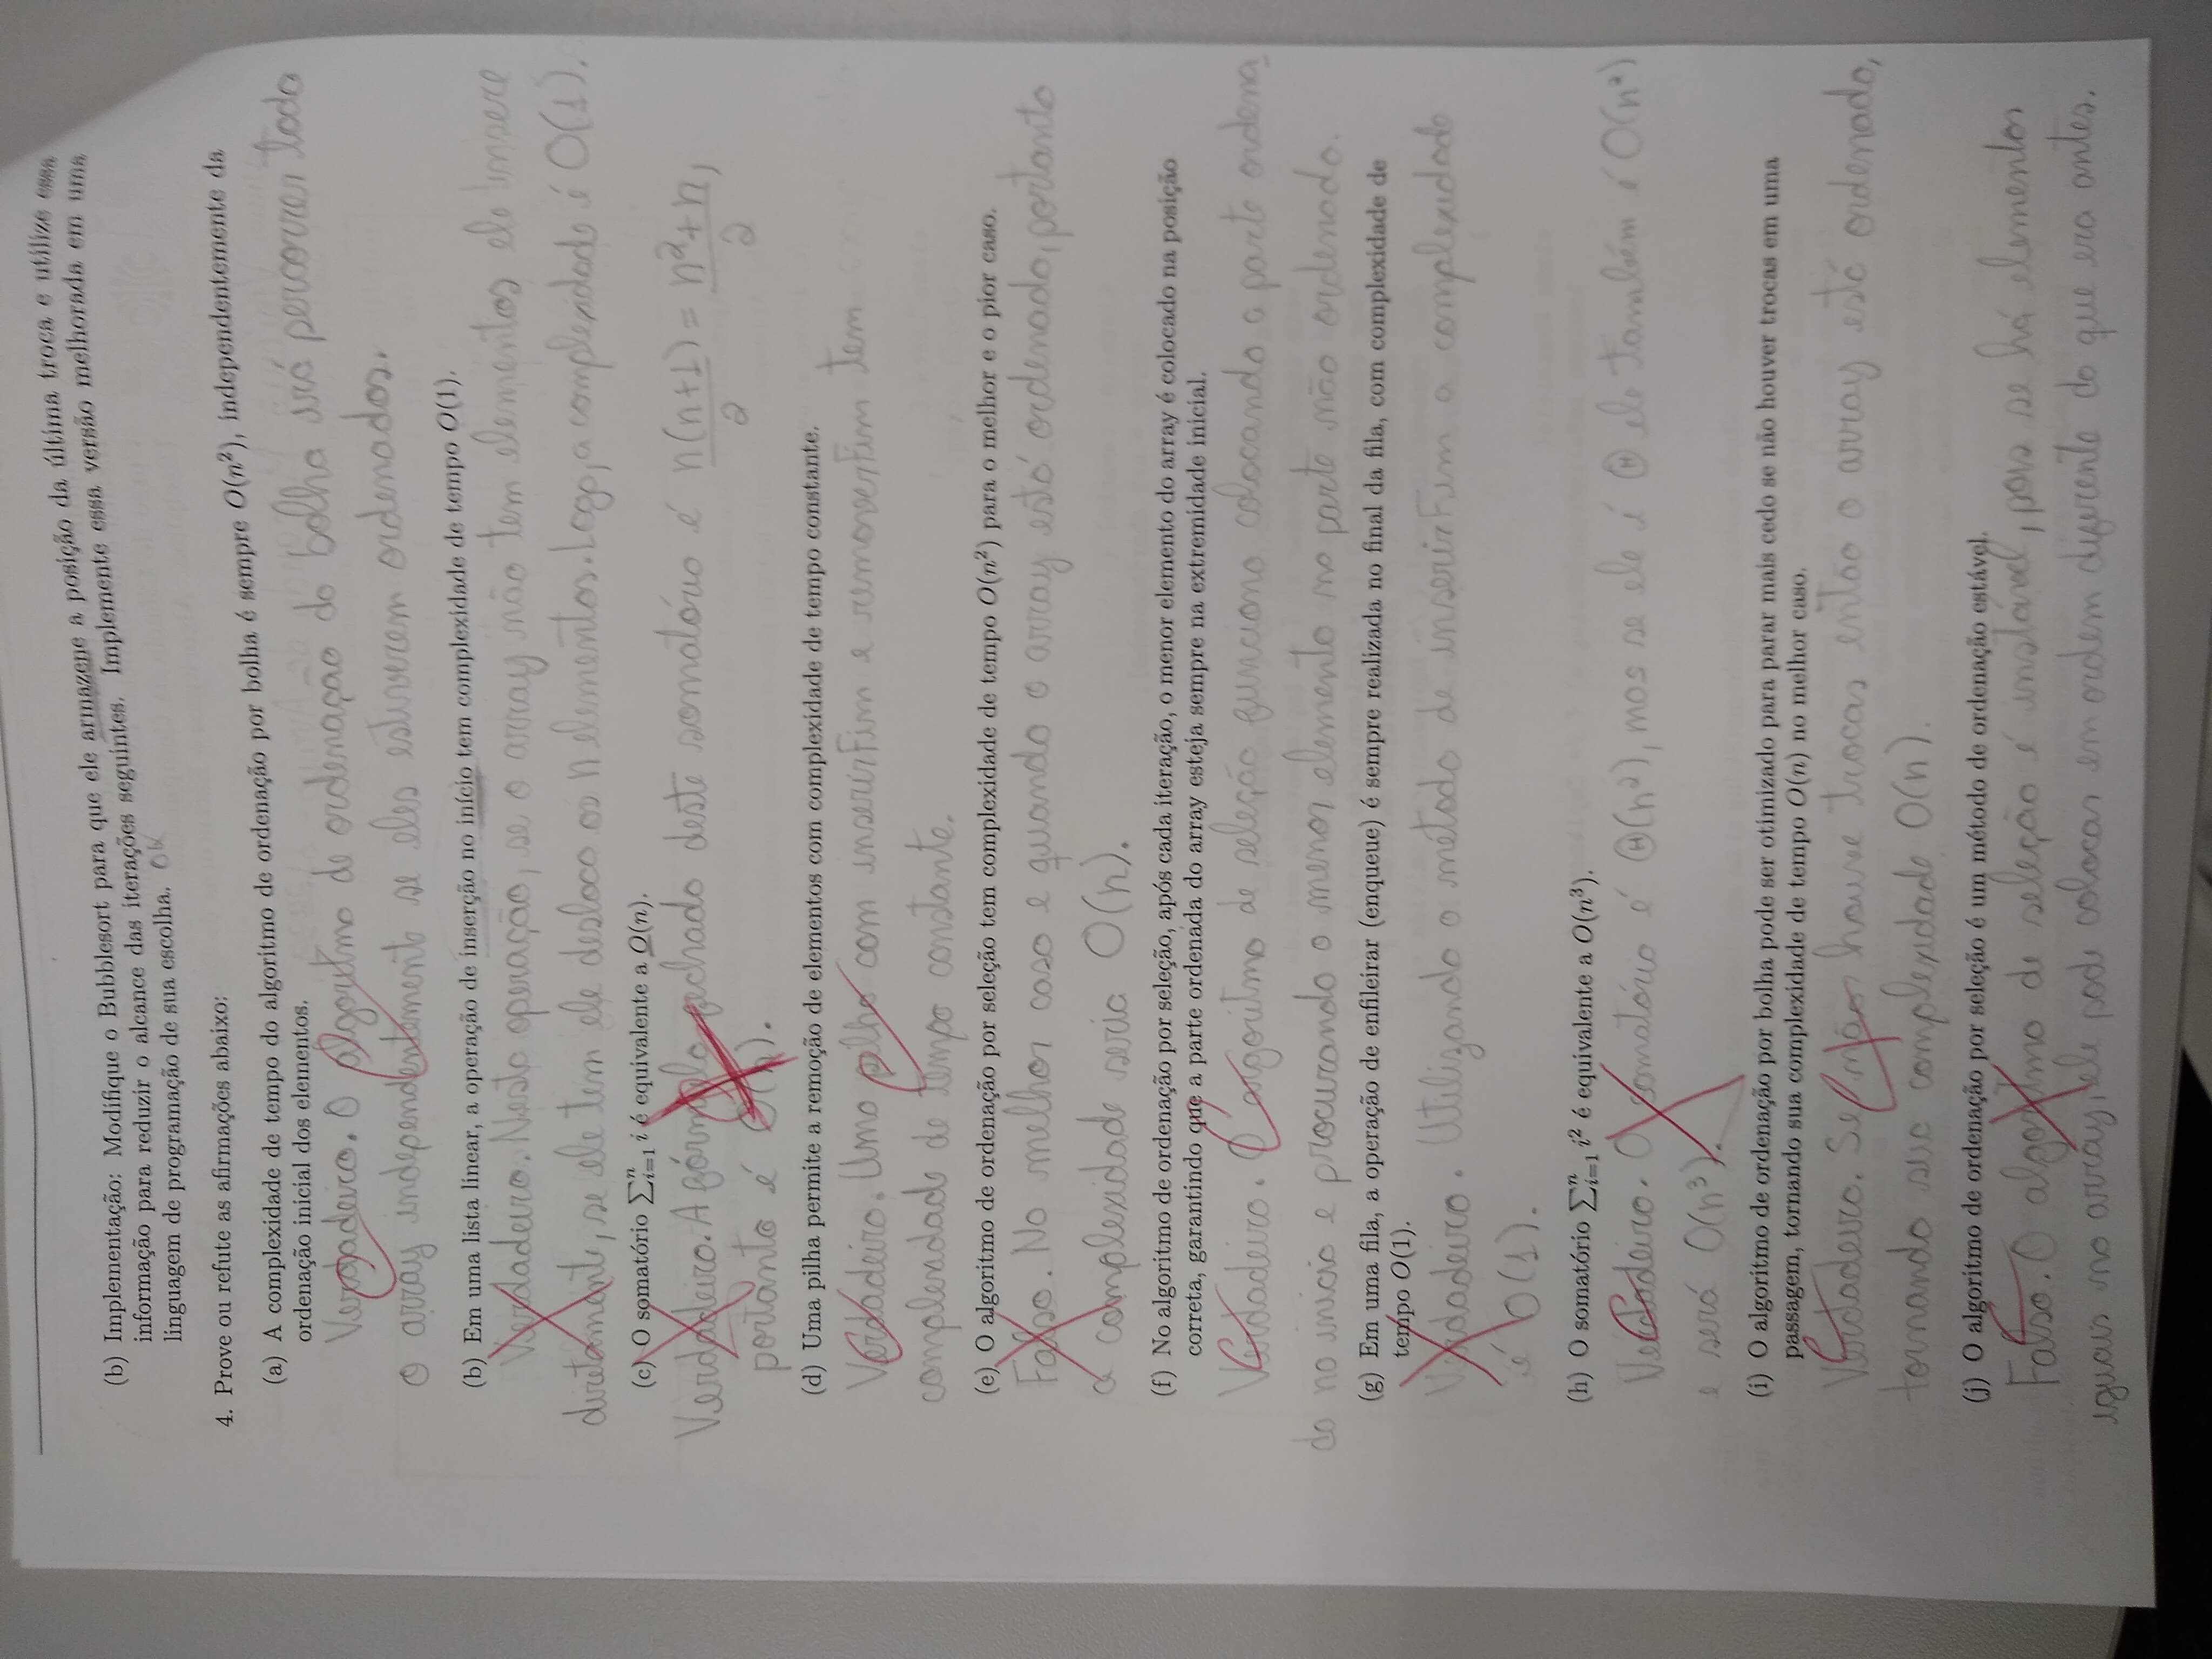 (b) Implementação: Modifique o Bubblesort para que ele armazene a posição da última troca e utilize essa
informação para reduzir o alcance das iterações seguintes. Implemente essa versão melhorada em uma
linguagem de programação de sua escolha. OK
4. Prove ou refute as afirmações abaixo:
(a) A complexidade de tempo do algoritmo de ordenação por bolha é sempre O(n²), independentemente da
ordenação inicial dos elementos.
Verdadeiro. O algoritmo de ordenação do bolha irá percorrer todo
o array independentemente se eles estiverem ordenados.
(b) Em uma lista linear, a operação de inserção no início tem complexidade de tempo O(1).
Verdadeiro. Nesta operação, se o array não tem elementos ele insere
diretamente, se ele tem ele desloca os n elementos. Logo, a complexidade é O(1).
(c) O somatório ∑ⁿᵢ₌₁ i é equivalente a O(n).
Verdadeiro. A fórmula fechada deste somatório é n(n+1)/2 = n²+n/2,
portanto é O(n).
(d) Uma pilha permite a remoção de elementos com complexidade de tempo constante.
Verdadeiro. Uma pilha com inserirFim e removerFim tem
complexidade de tempo constante.
(e) O algoritmo de ordenação por seleção tem complexidade de tempo O(n²) para o melhor e o pior caso.
Falso. No melhor caso e quando o array está ordenado, portanto
a complexidade seria O(n).
(f) No algoritmo de ordenação por seleção, após cada iteração, o menor elemento do array é colocado na posição
correta, garantindo que a parte ordenada do array esteja sempre na extremidade inicial.
Verdadeiro. O algoritmo de seleção funciona colocando a parte ordena_
da no inicio e procurando o menor elemento na parte não ordenada.
(g) Em uma fila, a operação de enfileirar (enqueue) é sempre realizada no final da fila, com complexidade de
tempo O(1).
Verdadeiro. Utilizando o metodo de inserirFim a complexidade
é O(1).
(h) O somatório ∑ⁿᵢ₌₁ i² é equivalente a O(n³).
Verdadeiro. O somatório é Θ(n²), mas se ele é Θ ele também é O(n²)
e será O(n³).
(i) O algoritmo de ordenação por bolha pode ser otimizado para parar mais cedo se não houver trocas em uma
passagem, tornando sua complexidade de tempo O(n) no melhor caso.
Verdadeiro. Se não houve trocas então o array está ordenado,
tornando sua complexidade O(n).
(j) O algoritmo de ordenação por seleção é um método de ordenação estável.
Falso. O algoritmo de seleção é instável, pois se há elementos
iguais no array, ele pode colocar em ordem diferente do que era antes.